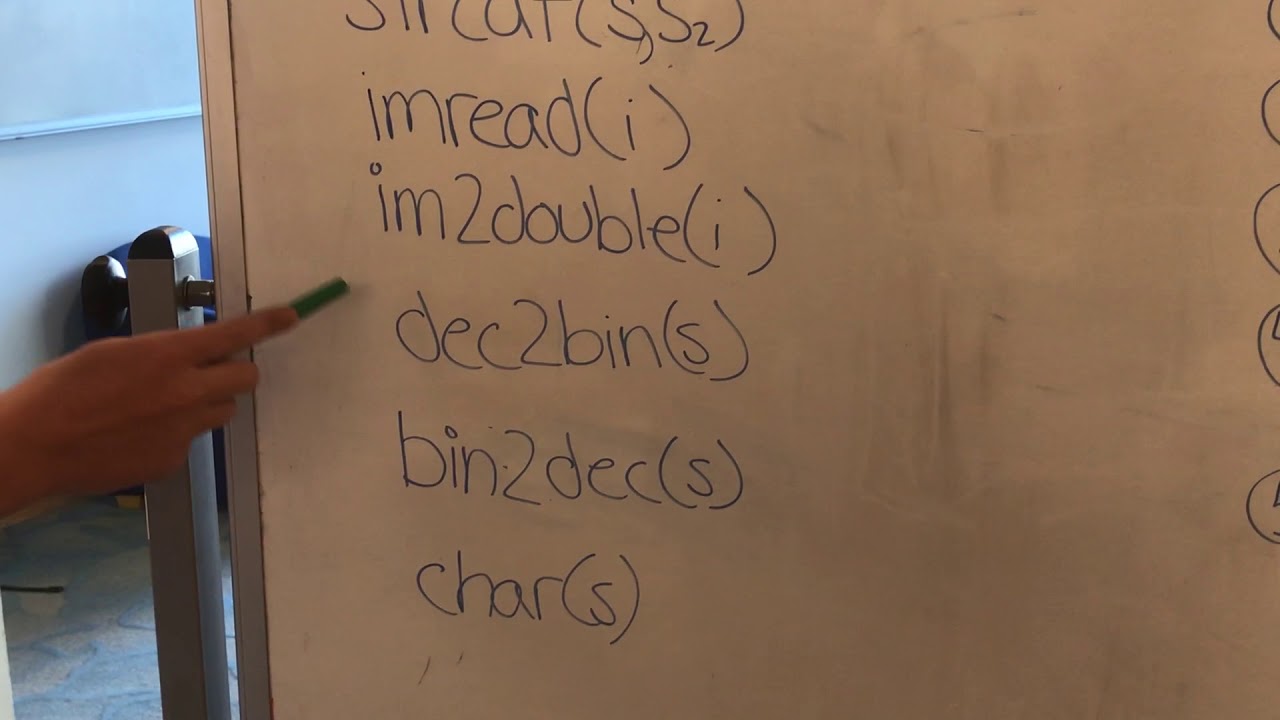 strcat(s,s₂)
imread(i)
im2double(i)
dec2bin(s)
bin2dec(s)
char(s)